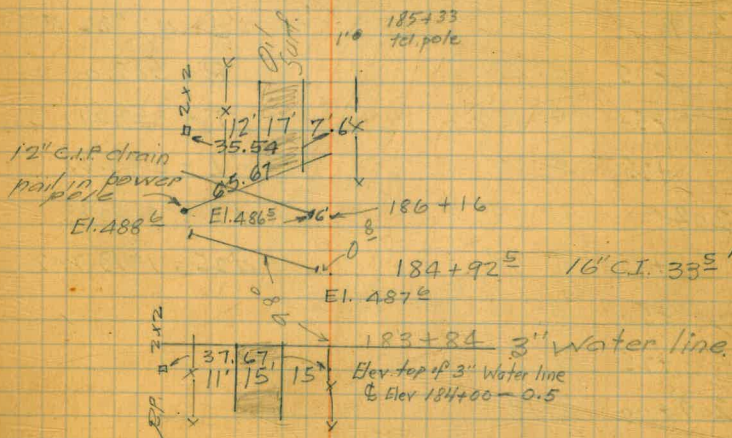 185+33
1'⁰ tel. pole
Oil Surf.
2x2
12' 17' 7' 6'
35.54
12" C.I.P. drain
65.67
nail in power
pole
186+16
El. 488⁶
El. 486⁵
6'
0⁸
184+92⁵ 16" C.I. 33⁵'
El. 487⁶
98⁰
2x2
183+84 3" Water line.
37.67
11' 15' 15'
Elev top of 3" Water line
℄ Elev 184+00 - 0.5